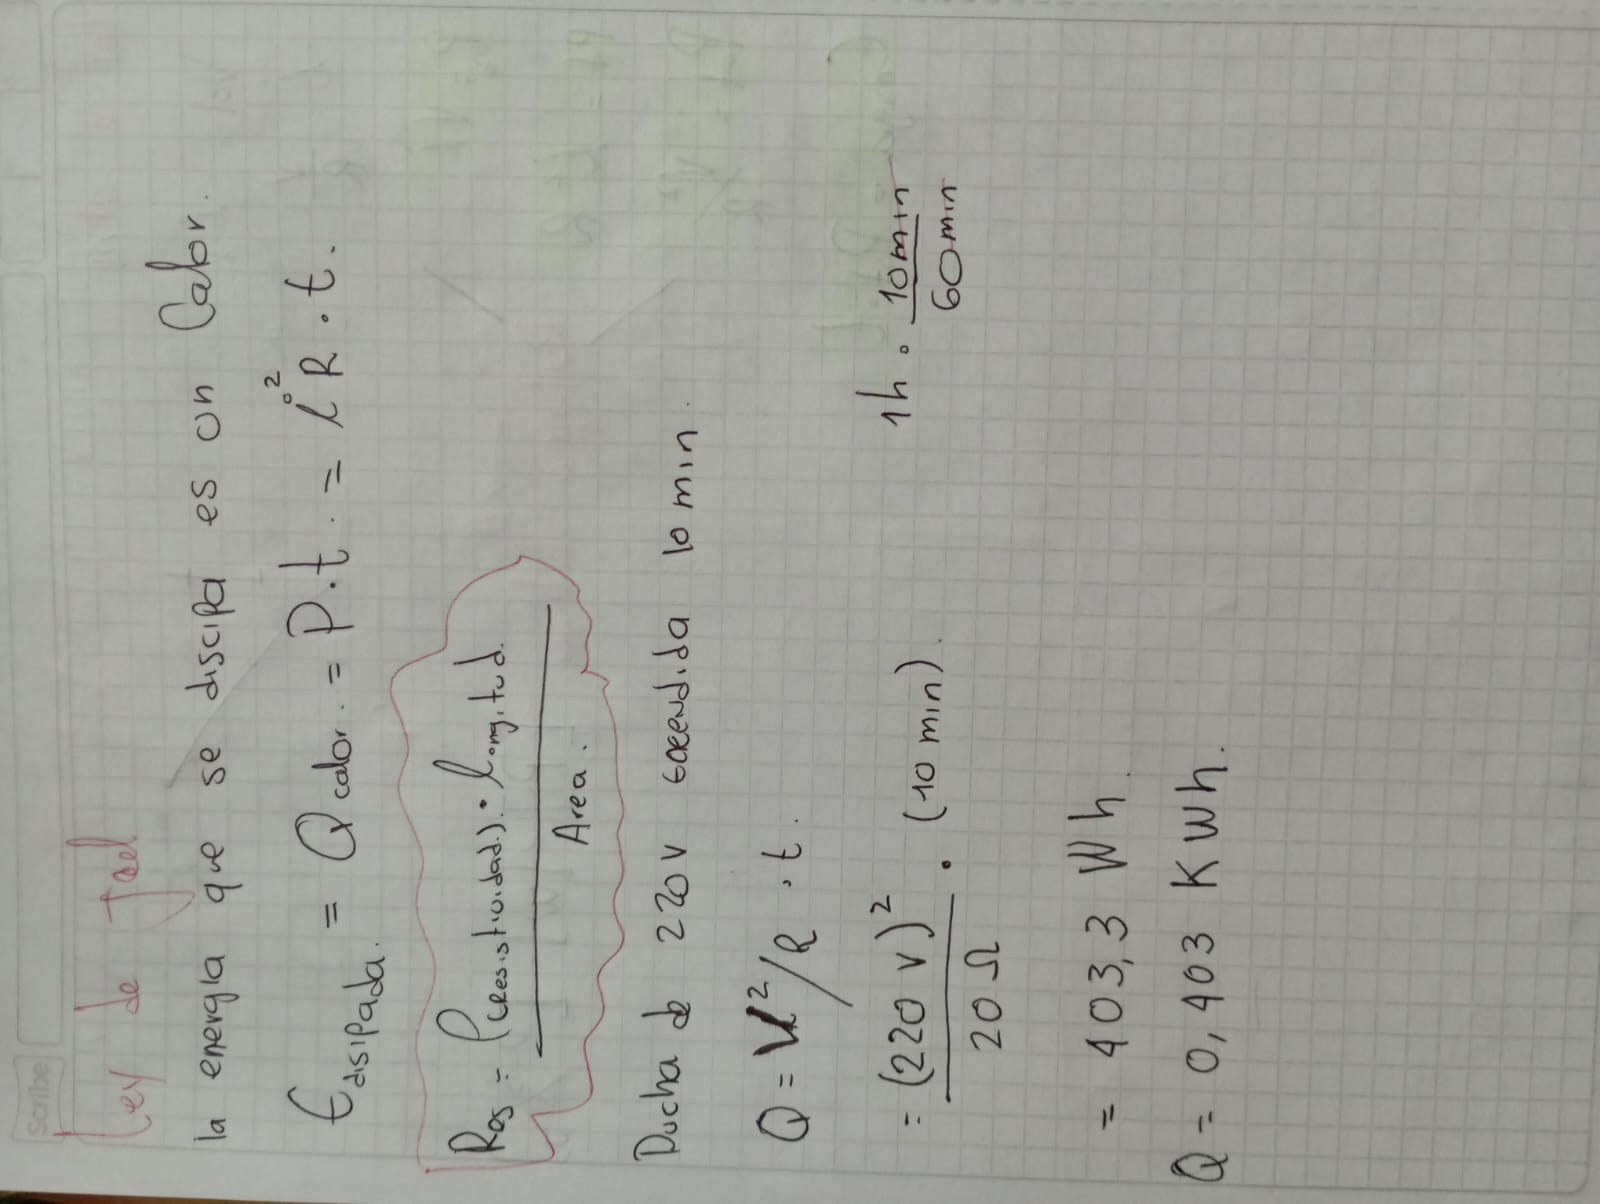 Scribe
Ley de Jael
la energía que se discipa es un Calor.
Edisipada. = Qcalor. = P.t. = i²R . t.
Res = ρ(Resistividad). · longitud.
Area.
Ducha de 220 V encendida 10 min.
Q = V²/R . t.
= (220 V)² . (10 min).
20 Ω
1h . 10min
60min
= 403,3 Wh.
Q = 0,403 KWh.